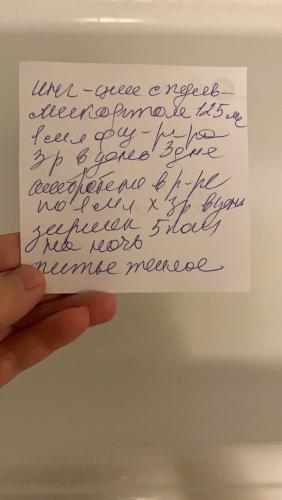 инг-ции с пульв-
микортом 125 мг
1 мл + физ-р-ра
3 р в день 3 дня
амбробене в р-ре
по 1 мл х 3р в день
зиртек 5 кап
на ночь
питье теплое